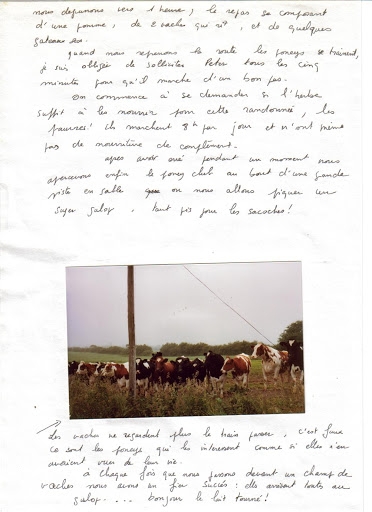 nous déjeunons vers 1 heure ; le repas se composant
d'une pomme, de 2 vaches qui rit, et de quelques
gateaux secs.
quand nous reprenons la route les poneys se trainent,
je suis obligée de solliciter Peter tous les cinq
minutes pour qu'il marche d'un bon pas.
on commence à se demander si l'herbe
suffit à les nourrir pour cette randonnée, les
pauvres! ils marchent 8h par jour et n'ont même
pas de nourriture de complément.
après avoir erré pendant un moment nous
apercevons enfin le poney club au bout d'une grande
piste en sable ou nous allons piquer un
super galop, tant pis pour les sacoches!
Les vaches ne regardent plus le train passer, c'est faux
ce sont les poneys qui les interessent comme si elles n'en
avaient vues de leur vie.
à chaque fois que nous passons devant un champ de
vaches nous avons un fier succès : elles arrivent toutes au
galop .... bonjour le lait tourné!